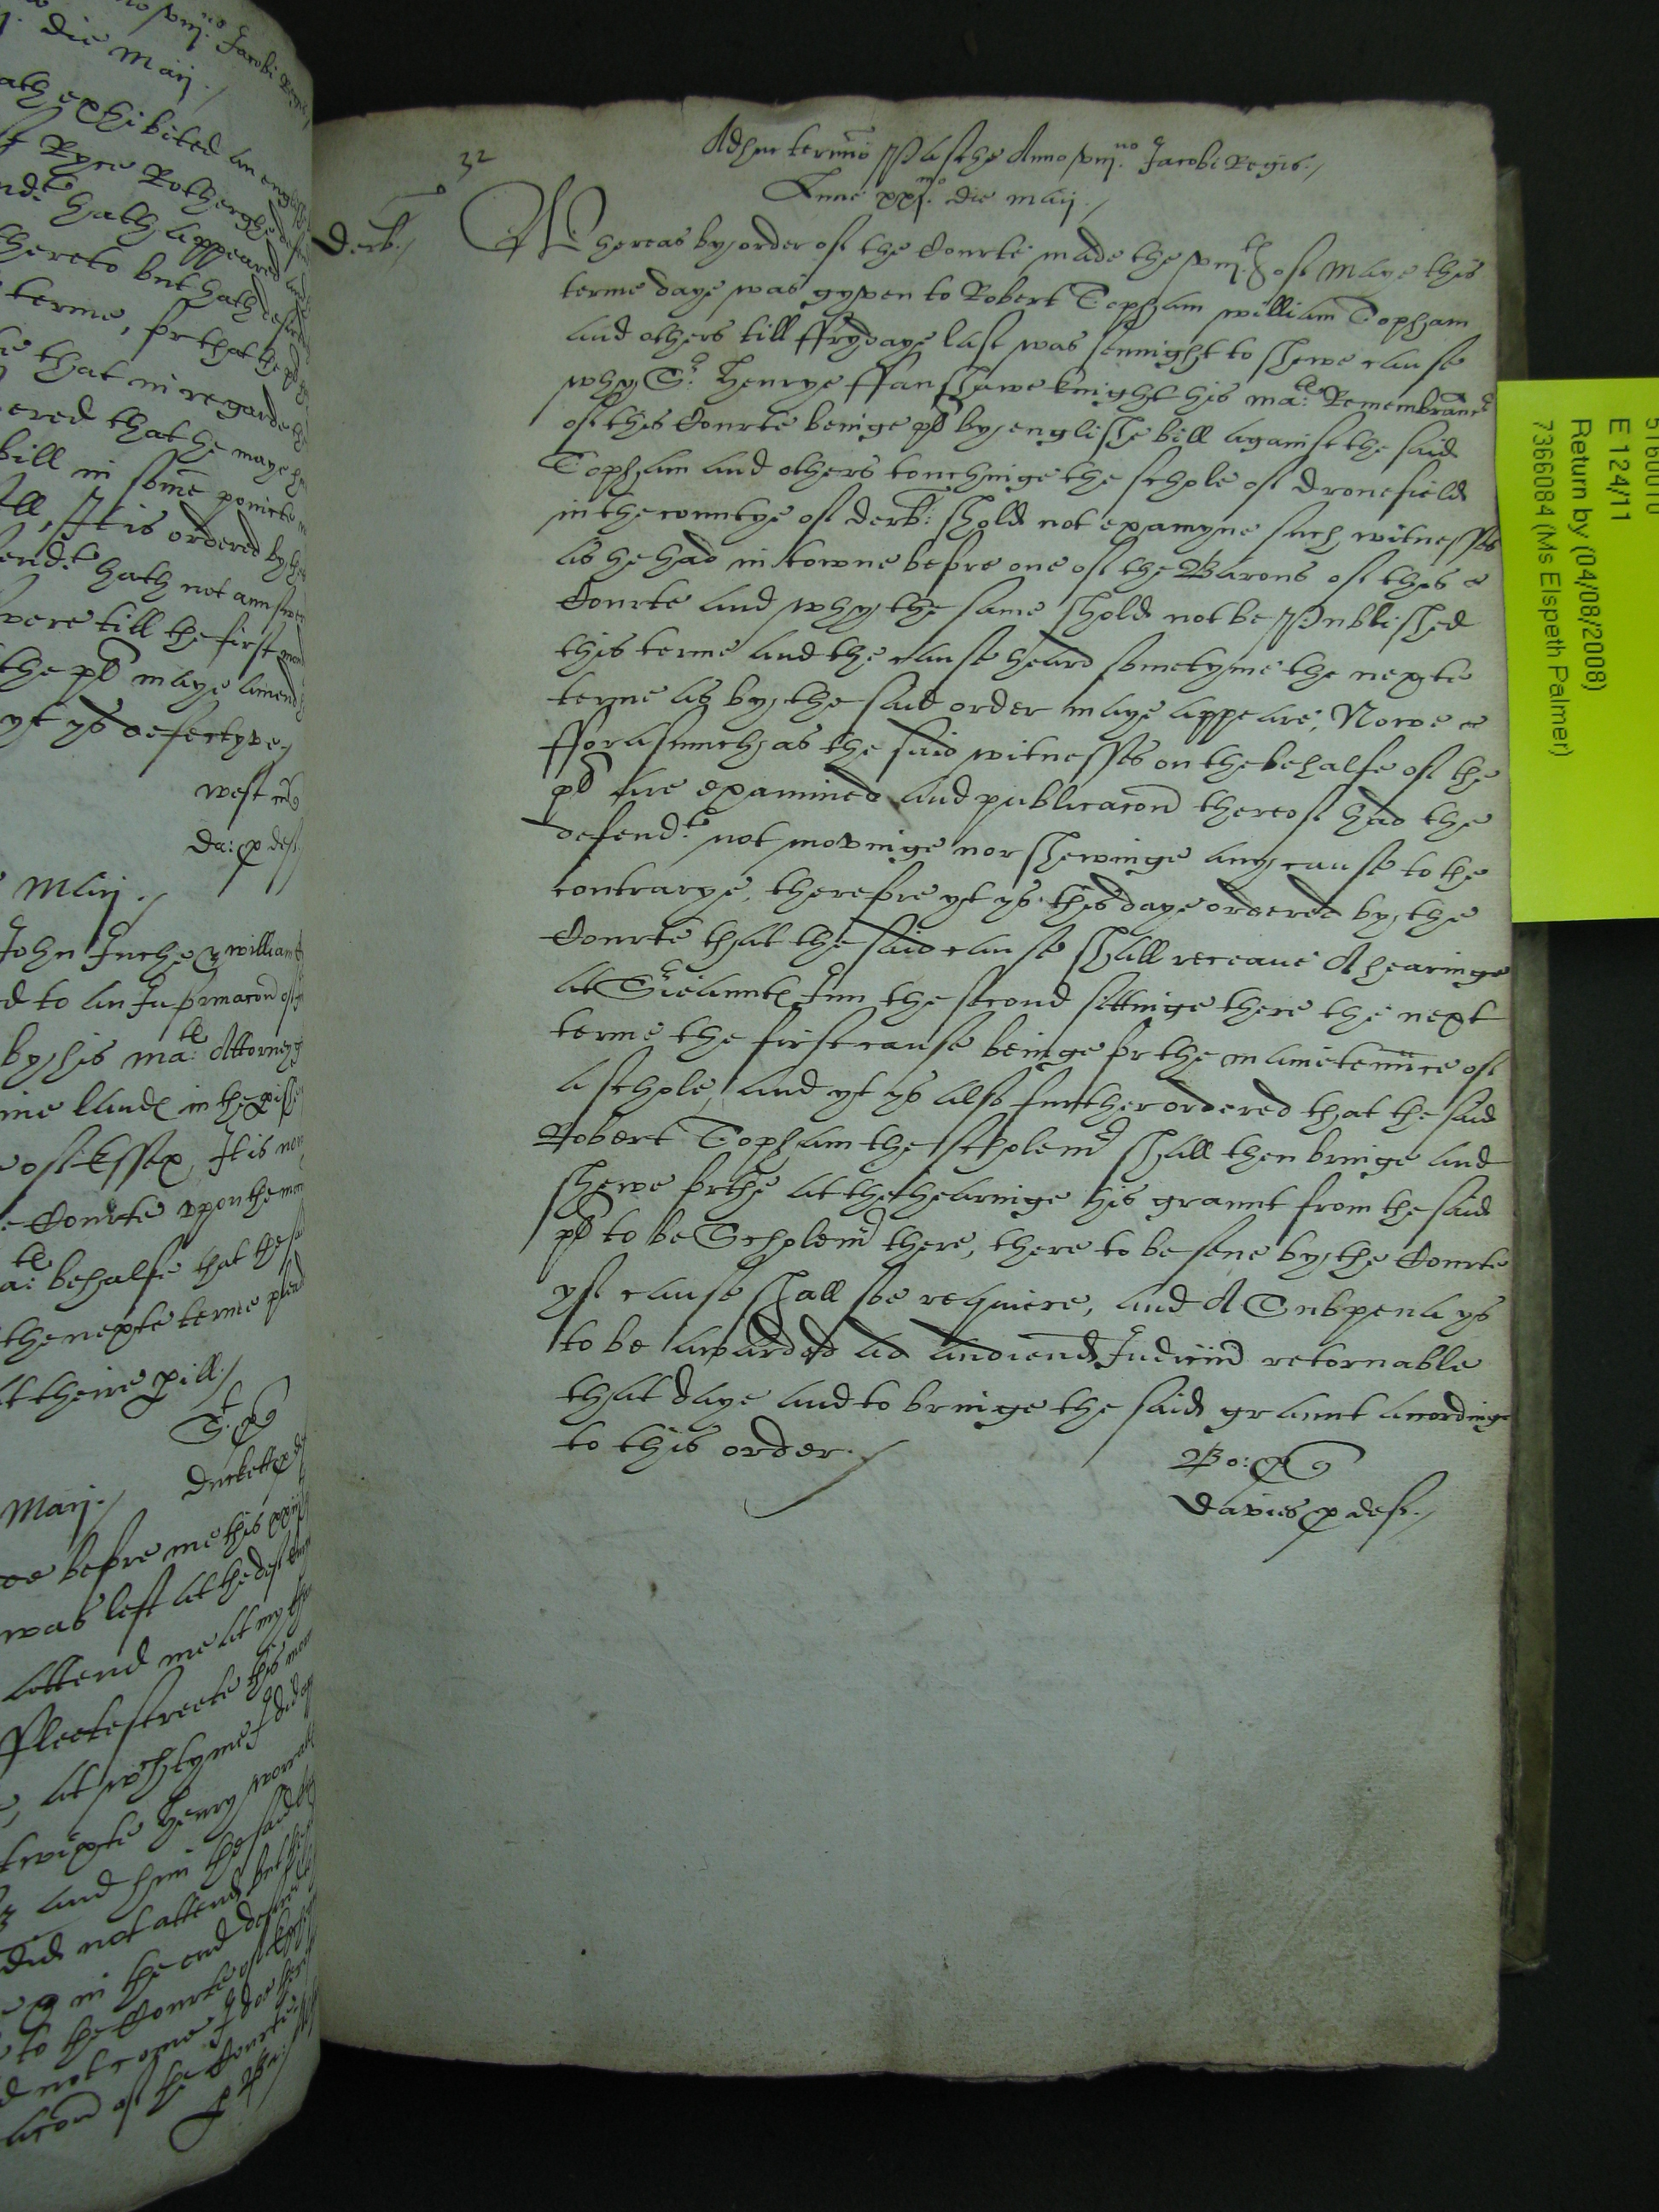 32
Adhuc termino Pasche Anno viij.no Jacobi Regis./
Lune xxj.mo die Maij./
Derb./
Whereas by order of the Courte made the viij.th of Maye this
terme daye was gyven to Robert Topham william Topham
and others till ffrydaye last was sennight to shewe cause
why Sr. Henrye ffanshawe knight his ma:te Remembrancr
of this Courte beinge plt by englishe bill against the said
Topham and others touchinge the schole of Dronefield
in the countye of derb: shold not examyne such witnesses
as he had in towne before one of the Barons of this
Courte and why the same shold not be published
this terme and the cause heard sometyme the nexte
terme as by the said order maye appeare, Nowe
fforasmuch as the said witnesses on the behalfe of the
plt are examined and publicacon thereof had the
defendte. not movinge nor shewinge any cause to the
contrarye, therefore yt ys this daye ordered by the
Courte that the said cause shall receave A hearinge
at Sricaunts Inn the second sittinge there the next
terme the first cause beinge for the maintenнce of
a schole, and yt ys also further ordered that the said
Robert Topham the scholemr shall then bringe and
shewe forthe at the hearinge his graunt from the said
plt to be Scholemr there, there to be sene by the Courte
yf cause shall soe requiere, and A Subpena ys
to be awarded ad audiend Judiciu retornable
that daye and to bringe the said graunt accordinge
to this order./
Bo: p q
Davies p def./
ath exhibited an englishe
hath appeared
hereto but hath
terme, for that the plt
that in regarde
ered that he maye
bill in some pointe
It is ordered by the
fendt. hath not answer
were till the first
the plt maye amend
yt ys defectyve
west
Da: p def
Maij./
John Inche & william
d to an Informacon of
by his ma:te Attorney
ine lands in the
of Essex, It is now
Courte uppon the
a:te behalfe that the
the nexte terme
at theire pill./
Duckett p
Maij./
before me this
was left at the
attend me at my
ffleetestreete this
at wch tyme I did
twixte Henry
and him the said
did not attend but
in the end
to the Courte of
not come I doe
of the Courte
E 124/11
Return by (04/08/2008)
7366084 (Ms Elspeth Palmer)